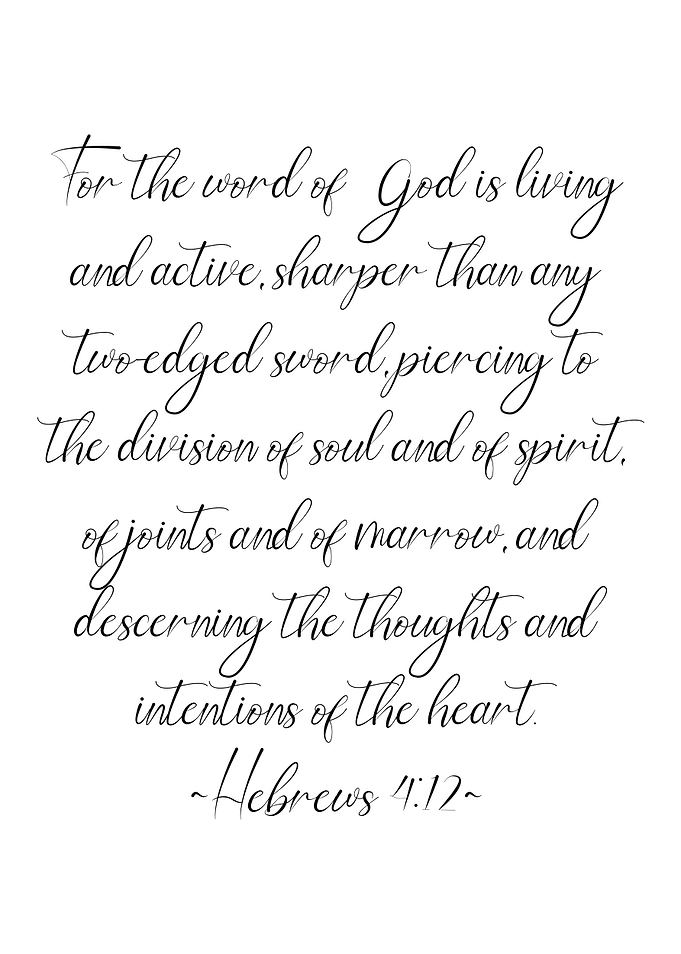 For the word of God is living
and active, sharper than any
two-edged sword, piercing to
the division of soul and of spirit,
of joints and of marrow, and
descerning the thoughts and
intentions of the heart.
~Hebrews 4:12~